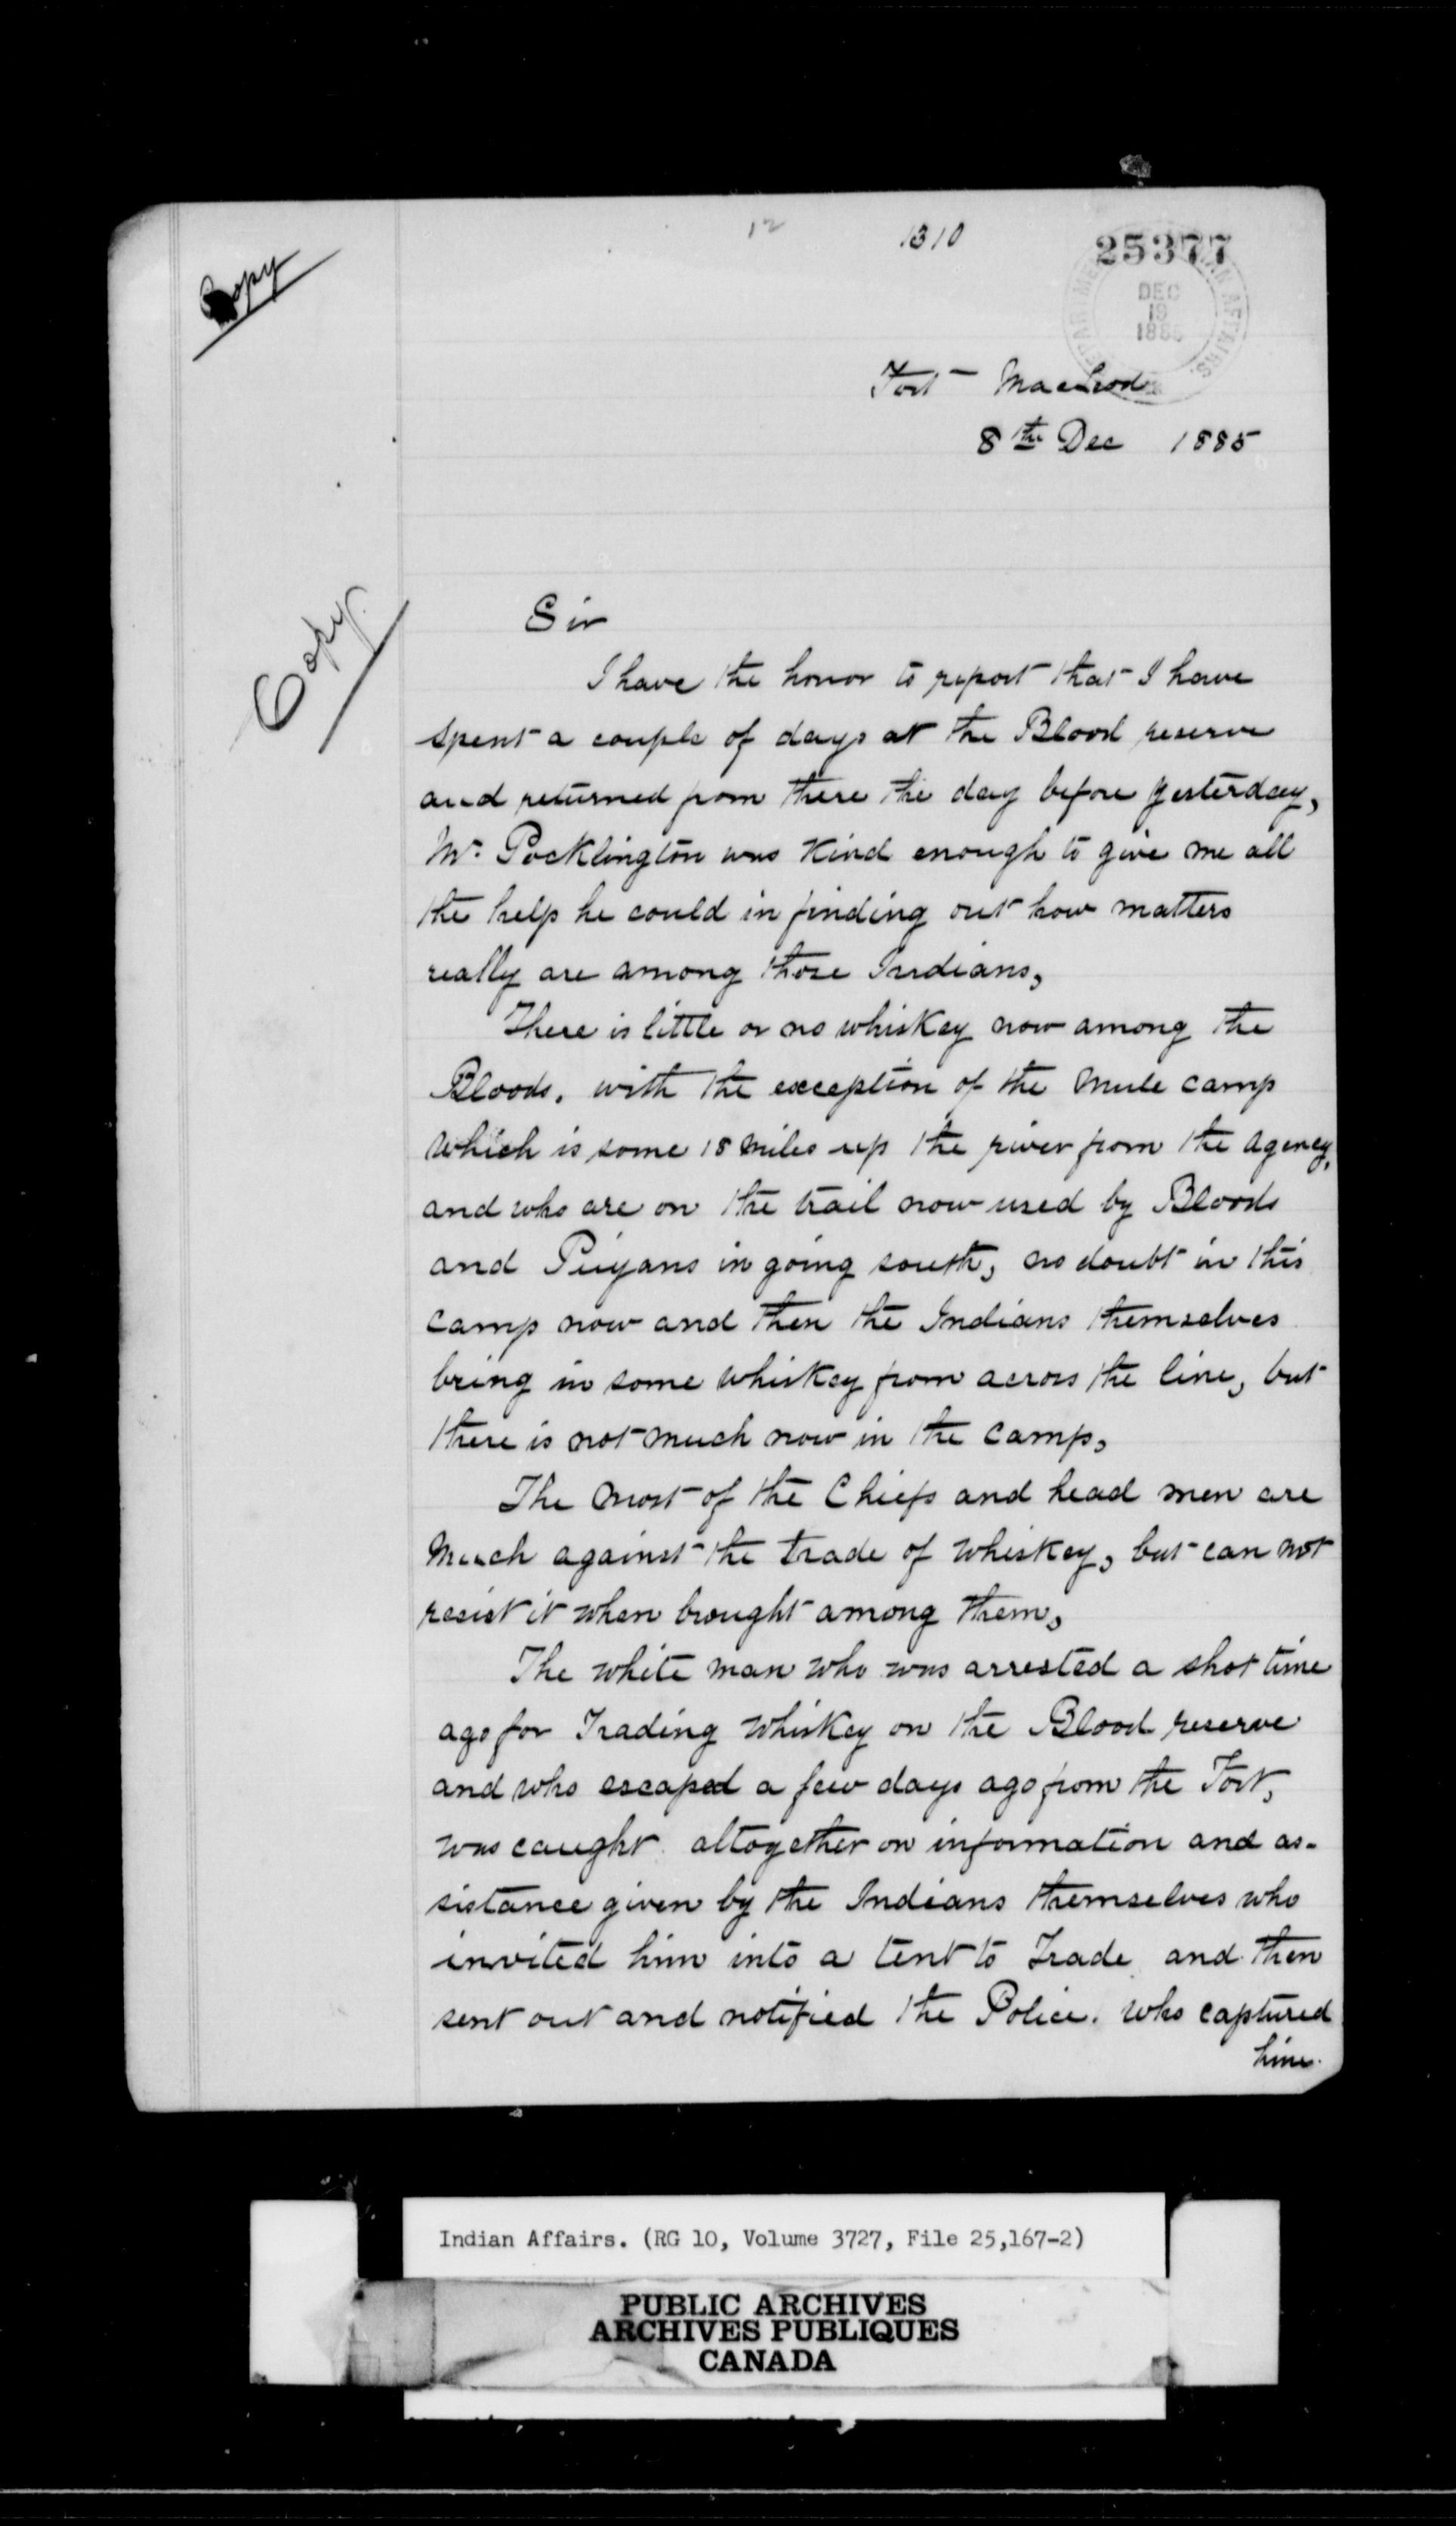 Copy
12
1310
25377
DEPARTMENT INDIAN AFFAIRS.
DEC
19
1885
Fort Macleod
8th Dec 1885
Copy
Sir
I have the honor to report that I have
spent a couple of days at the Blood reserve
and returned from there the day before yesterday,
Mr. Pocklington was kind enough to give me all
the help he could in finding out how matters
really are among those Indians,
There is little or no whiskey now among the
Bloods, with the exception of the Mule camp
which is some 18 miles up the river from the agency,
and who are on the trail now used by Bloods
and Piegans in going south, no doubt in this
camp now and then the Indians themselves
bring in some whiskey from across the line, but
there is not much now in the camp,
The most of the Chiefs and head men are
much against the trade of whiskey, but can not
resist it when brought among them,
The white man who was arrested a shot time
ago for Trading whiskey on the Blood reserve
and who escaped a few days ago from the Fort,
was caught altogether on information and as-
sistance given by the Indians themselves who
invited him into a tent to Trade and then
sent out and notified the Police. who captured
him.
Indian Affairs. (RG 10, Volume 3727, File 25,167-2)
PUBLIC ARCHIVES
ARCHIVES PUBLIQUES
CANADA